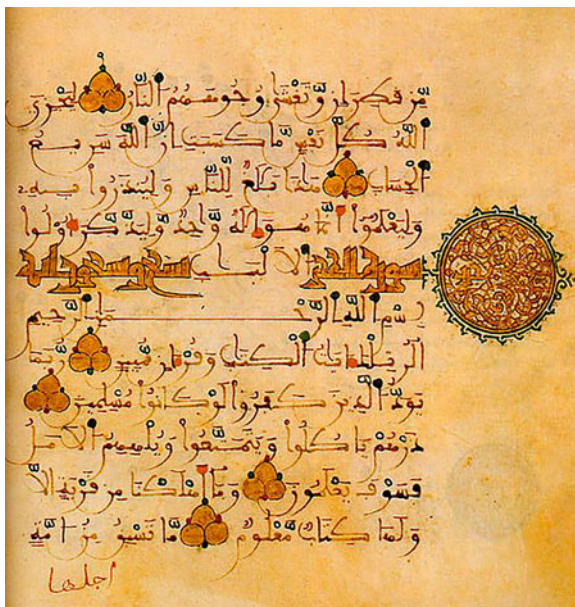 مّن قطران وّتغشى وجوههم النّار ليجزى
الله كلّ نفس مّا كسبت انّ الله سريع
الحساب هذا بلغ لّلنّاس ولينذروا به
وليعلموا أنّما هو إله وّاحد وّليذّكّر أولوا
سورة الحجر الالبب تسع وتسعون اية
بسم الله الرّحمن الرّحيم
الر تلك ءايت الكتب وقرءان مّبين رّبما
يودّ الّذين كفروا لو كانوا مسلمين
ذرهم ياكلوا ويتمتّعوا ويلههم الامل
فسوف يعلمون وما أهلكنا من قرية الاّ
ولها كتاب مّعلوم مّا تسبق من امّة
اجلها